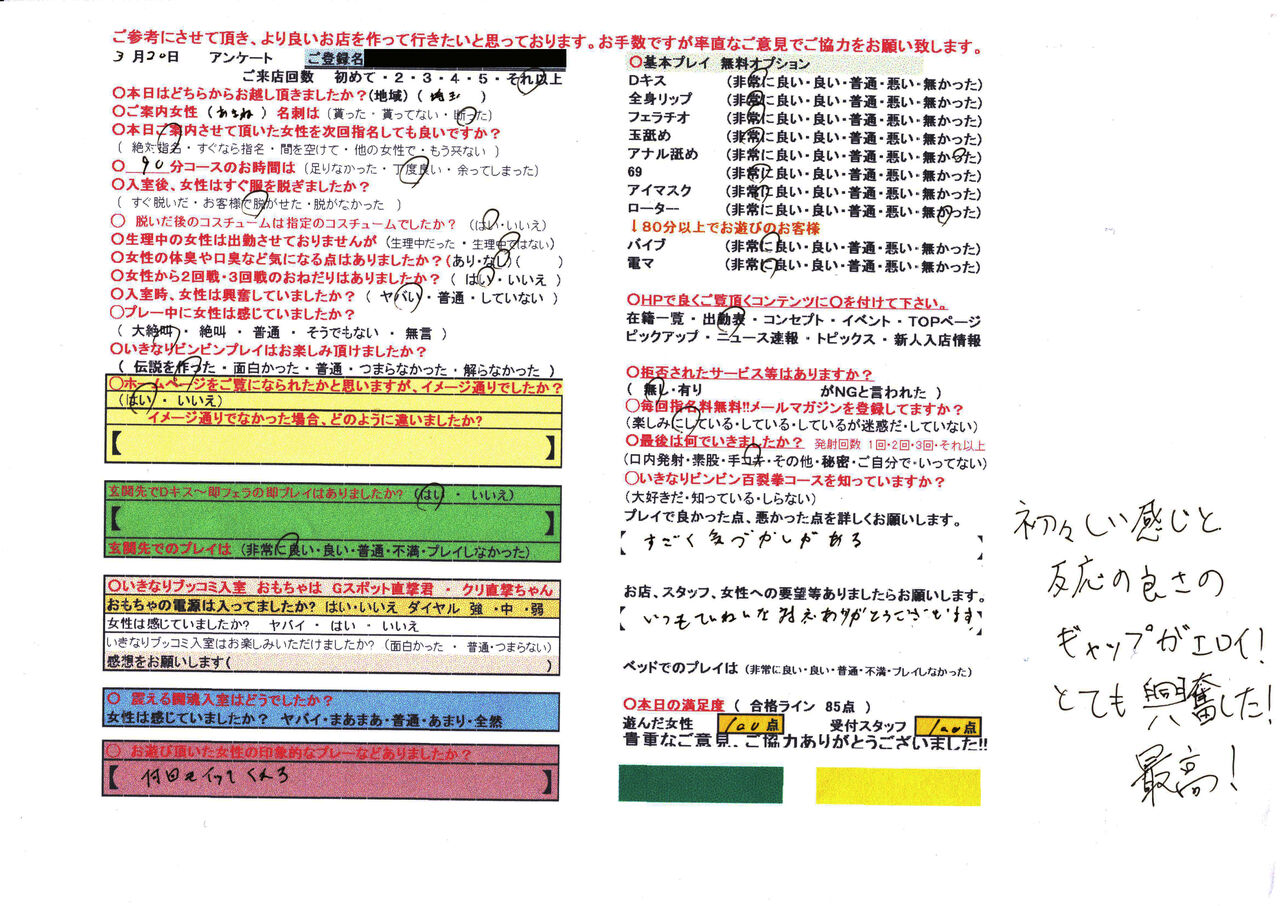 ご参考にさせて頂き、より良いお店を作って行きたいと思っております。お手数ですが率直なご意見でご協力をお願い致します。
3月20日 アンケート ご登録名
ご来店回数 初めて・2・3・4・5・それ以上
〇本日はどちらからお越し頂きましたか?(地域) ( 埼玉 )
〇ご案内女性 ( ) 名刺は (貰った・貰ってない・断った)
〇本日ご案内させて頂いた女性を次回指名しても良いですか?
( 絶対指名・すぐなら指名・間を空けて・他の女性で・もう来ない )
〇 90分コースのお時間は (足りなかった・丁度良い・余ってしまった)
〇入室後、女性はすぐ服を脱ぎましたか?
( すぐ脱いだ・お客様で脱がせた・脱がなかった )
〇 脱いだ後のコスチュームは指定のコスチュームでしたか? (はい・いいえ)
〇生理中の女性は出勤させておりませんが (生理中だった・生理中ではない)
〇女性の体臭や口臭など気になる点はありましたか?(あり・なし)( )
〇女性から2回戦・3回戦のおねだりはありましたか? ( はい・いいえ )
〇入室時、女性は興奮していましたか? ( ヤバい・普通・していない )
〇プレー中に女性は感じていましたか?
( 大絶叫・絶叫・普通・そうでもない・無言 )
〇いきなりビンビンプレイはお楽しみ頂けましたか?
( 伝説を作った・面白かった・普通・つまらなかった・解らなかった )
〇ホームページをご覧になられたかと思いますが、イメージ通りでしたか?
(はい ・ いいえ)
イメージ通りでなかった場合、どのように違いましたか?
【 】
玄関先でDキス～即フェラの即プレイはありましたか? (はい ・ いいえ)
【 】
玄関先でのプレイは (非常に良い・良い・普通・不満・プレイしなかった)
〇いきなりブッコミ入室 おもちゃは Gスポット直撃君 ・ クリ直撃ちゃん
おもちゃの電源は入ってましたか? はい・いいえ ダイヤル 強 ・中 ・弱
女性は感じていましたか? ヤバイ ・ はい ・ いいえ
いきなりブッコミ入室はお楽しみいただけましたか? (面白かった ・ 普通・つまらない)
感想をお願いします( )
〇 震える闘魂入室はどうでしたか?
女性は感じていましたか? ヤバイ・まあまあ・普通・あまり・全然
〇 お遊び頂いた女性の印象的なプレーなどありましたか?
【 何回もイってくれる 】
〇基本プレイ 無料オプション
Dキス (非常に良い・良い・普通・悪い・無かった)
全身リップ (非常に良い・良い・普通・悪い・無かった)
フェラチオ (非常に良い・良い・普通・悪い・無かった)
玉舐め (非常に良い・良い・普通・悪い・無かった)
アナル舐め (非常に良い・良い・普通・悪い・無かった)
69 (非常に良い・良い・普通・悪い・無かった)
アイマスク (非常に良い・良い・普通・悪い・無かった)
ローター (非常に良い・良い・普通・悪い・無かった)
↓80分以上でお遊びのお客様
バイブ (非常に良い・良い・普通・悪い・無かった)
電マ (非常に良い・良い・普通・悪い・無かった)
〇HPで良くご覧頂くコンテンツに〇を付けて下さい。
在籍一覧・出勤表・コンセプト・イベント・TOPページ
ピックアップ・ニュース速報・トピックス・新人入店情報
〇拒否されたサービス等はありますか?
( 無し・有り がNGと言われた )
〇毎回指名料無料!!メールマガジンを登録してますか?
(楽しみにしている・している・しているが迷惑だ・していない)
〇最後は何でいきましたか? 発射回数 1回・2回・3回・それ以上
(口内発射・素股・手コキ・その他・秘密・ご自分で・いってない)
〇いきなりビンビン百裂拳コースを知っていますか?
(大好きだ・知っている・しらない)
プレイで良かった点、悪かった点を詳しくお願いします。
【 すごく気づかいがある 】
お店、スタッフ、女性への要望等ありましたらお願いします。
【 いつもていねいな対応ありがとうございます 】
ベッドでのプレイは (非常に良い・良い・普通・不満・プレイしなかった)
〇本日の満足度 ( 合格ライン 85点 )
遊んだ女性 100点 受付スタッフ 100点
貴重なご意見、ご協力ありがとうございました!!
初々しい感じと
反応の良さの
ギャップがエロイ!
とても興奮した!
最高!